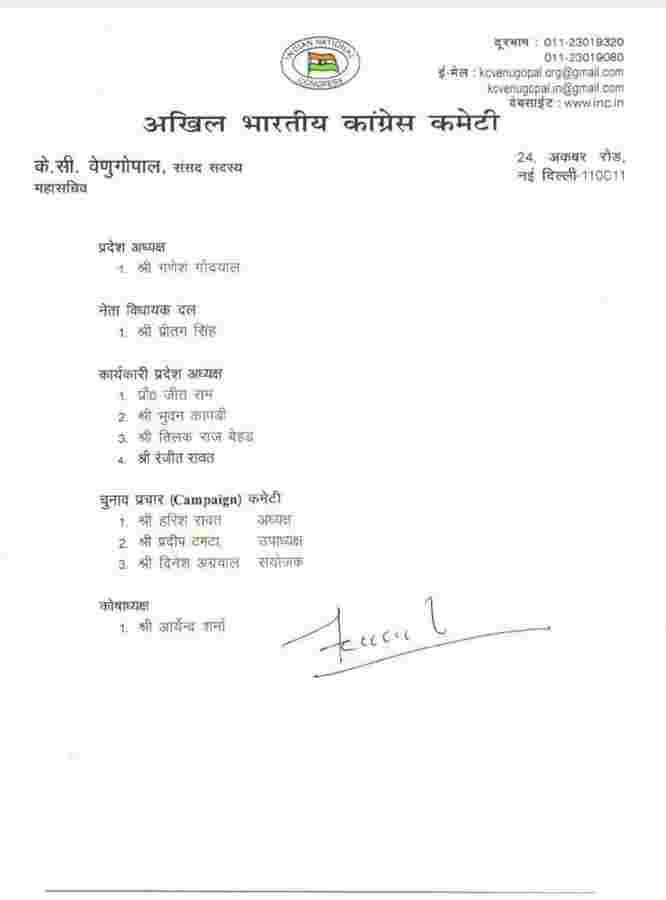 INDIAN NATIONAL
CONGRESS
दूरभाष : 011-23019320
011-23019080
ई-मेल : kcvenugopal.org@gmail.com
kcvenugopal.in@gmail.com
वेबसाईट : www.inc.in
अखिल भारतीय कांग्रेस कमेटी
के.सी. वेणुगोपाल, संसद सदस्य
महासचिव
24, अकबर रोड,
नई दिल्ली-110011
प्रदेश अध्यक्ष
1. श्री गणेश गोदयाल
नेता विधायक दल
1. श्री प्रीतम सिंह
कार्यकारी प्रदेश अध्यक्ष
1. प्रो० जीत राम
2. श्री भुवन कापड़ी
3. श्री तिलक राज बेहड़
4. श्री रंजीत रावत
चुनाव प्रचार (Campaign) कमेटी
1. श्री हरिश रावत अध्यक्ष
2. श्री प्रदीप टमटा, उपाध्यक्ष
3. श्री दिनेश अग्रवाल संयोजक
कोषाध्यक्ष
1. श्री आर्येन्द शर्मा